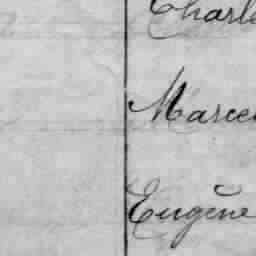 Charle
Marcel
Eugène